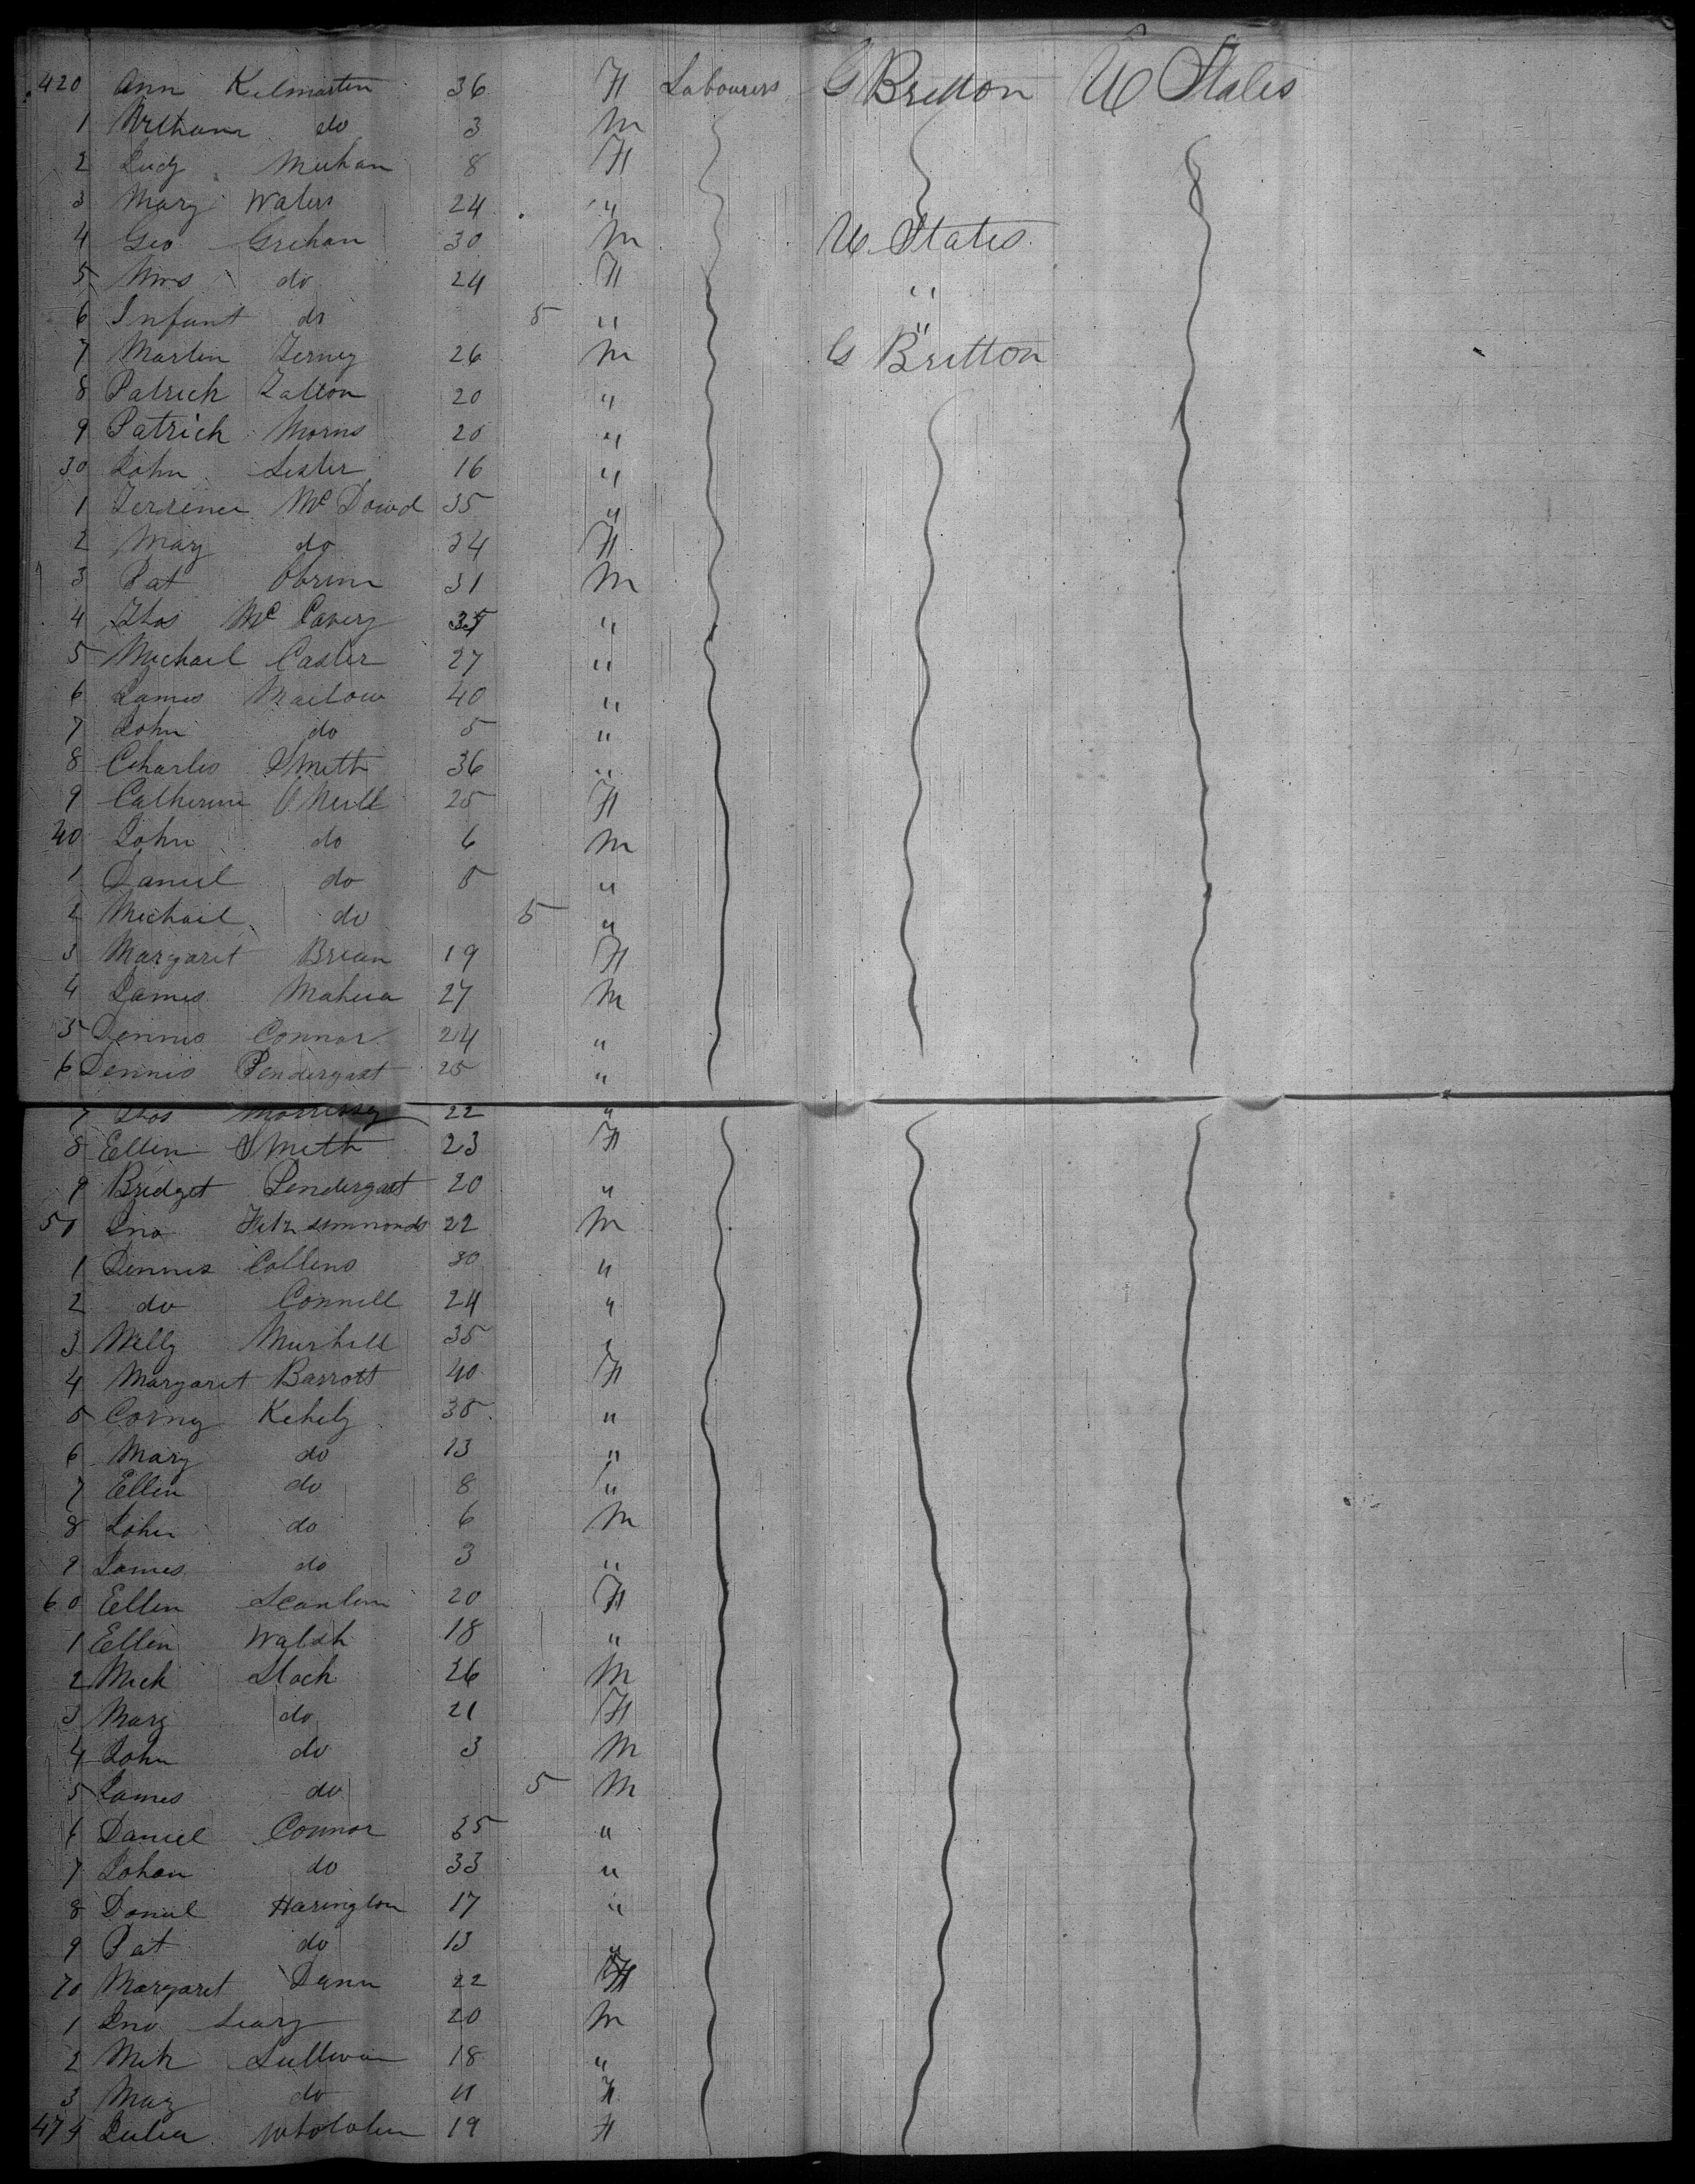 420 Ann Kilmartin 36 F Labourers G Britton U States
1 William do 3 M
2 Judy Meehan 8 F
3 Mary Waters 24 "
4 Geo Grehan 30 M U. States
5 Mrs do 24 F "
6 Infant do 5 " "
7 Martin Terney 26 M G Britton
8 Patrick Talton 20 "
9 Patrick Morris 20 "
30 John Lester 16 "
1 Terrence McDowd 35 "
2 Mary do 24 F
3 Pat Obrien 31 M
4 Thos McCavery 35 "
5 Michael Casler 27 "
6 James Mailow 40 "
7 John do 5 "
8 Charles Smith 36 "
9 Catherine ONeill 25 F
40 John do 6 M
1 Daniel do 5 "
2 Michail do 5 "
3 Margaret Brean 19 F
4 James 27 M
5 Dennis Connor 24 "
6 Dennis Pendergast 25 "
7 Thos Morrissey 22 "
8 Ellen Smith 23 F
9 Bridget Pendergast 20 "
50 Jno Fitzsimmonds 22 M
1 Dennis Collins 30 "
2 do Connell 24 "
3 Willy 35 "
4 Margaret Barrott 40 F
5 Corny Kehely 35 "
6 Mary do 13 "
7 Ellen do 8 "
8 John do 6 M
9 James do 3 "
60 Ellen Scanlon 20 F
1 Ellen Walsh 18 "
2 Mick Stack 26 M
3 Mary do 21 F
4 John do 3 M
5 James do 5 M
6 Daniel Connor 35 "
7 Johan do 33 "
8 Daniel Harington 17 "
9 Pat do 13 "
70 Margaret Dunn 22 F
1 Jno Leary 20 M
2 Mik Sullivan 18 "
3 May do 11 F
474 Julia 19 F